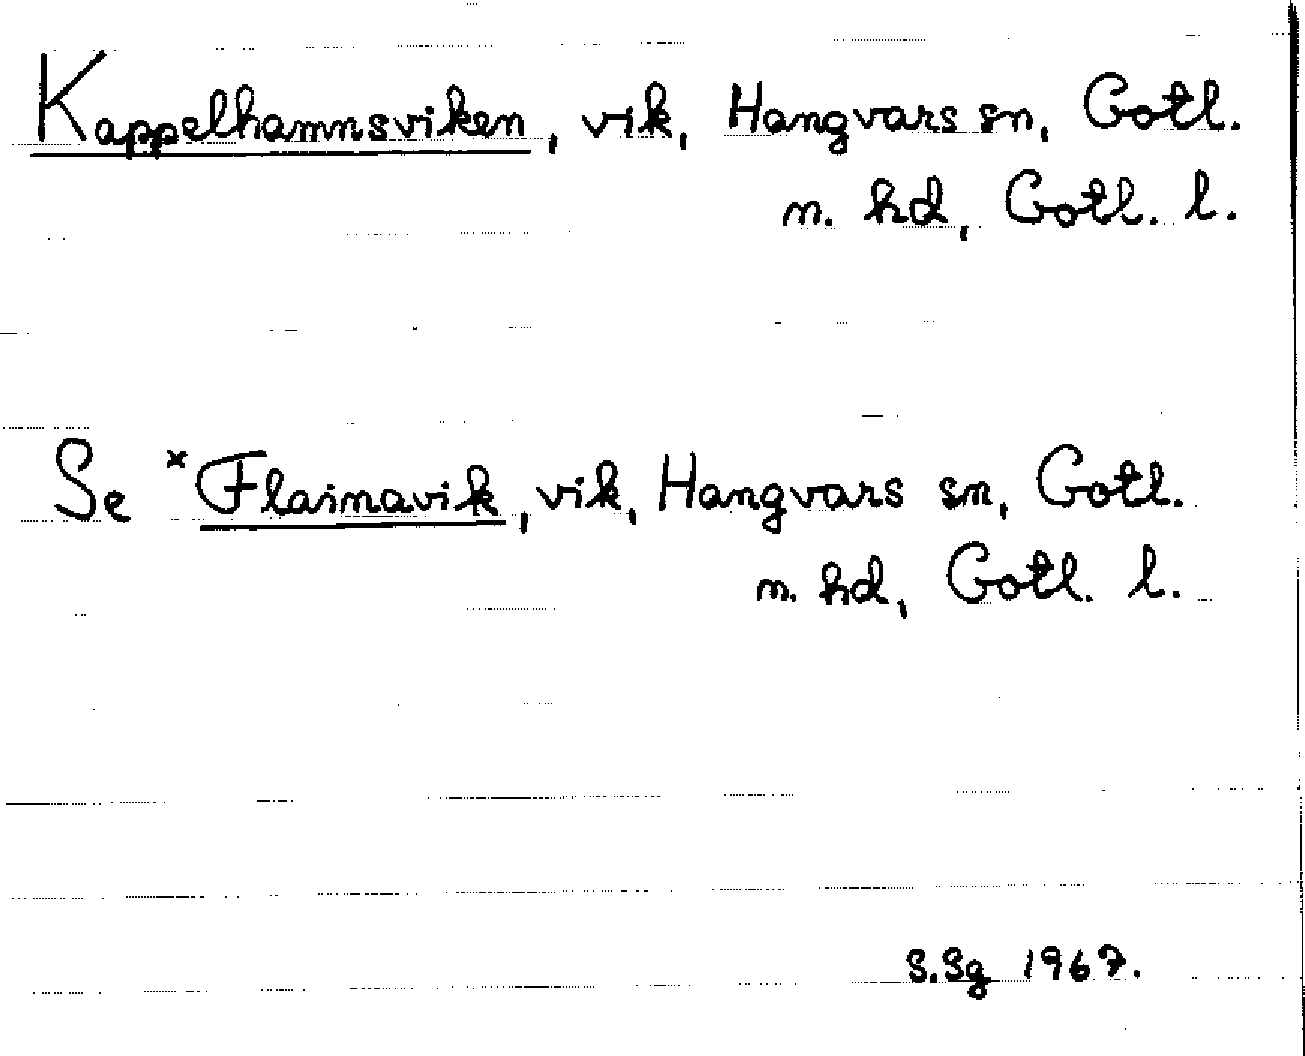 Kappelhamnsviken, vik, Hangvars sn, Gotl.
n. hd, Gotl. l.
Se *Flaimavik, vik, Hangvars sn, Gotl.
n. hd, Gotl. l.
S.Sg 1967.